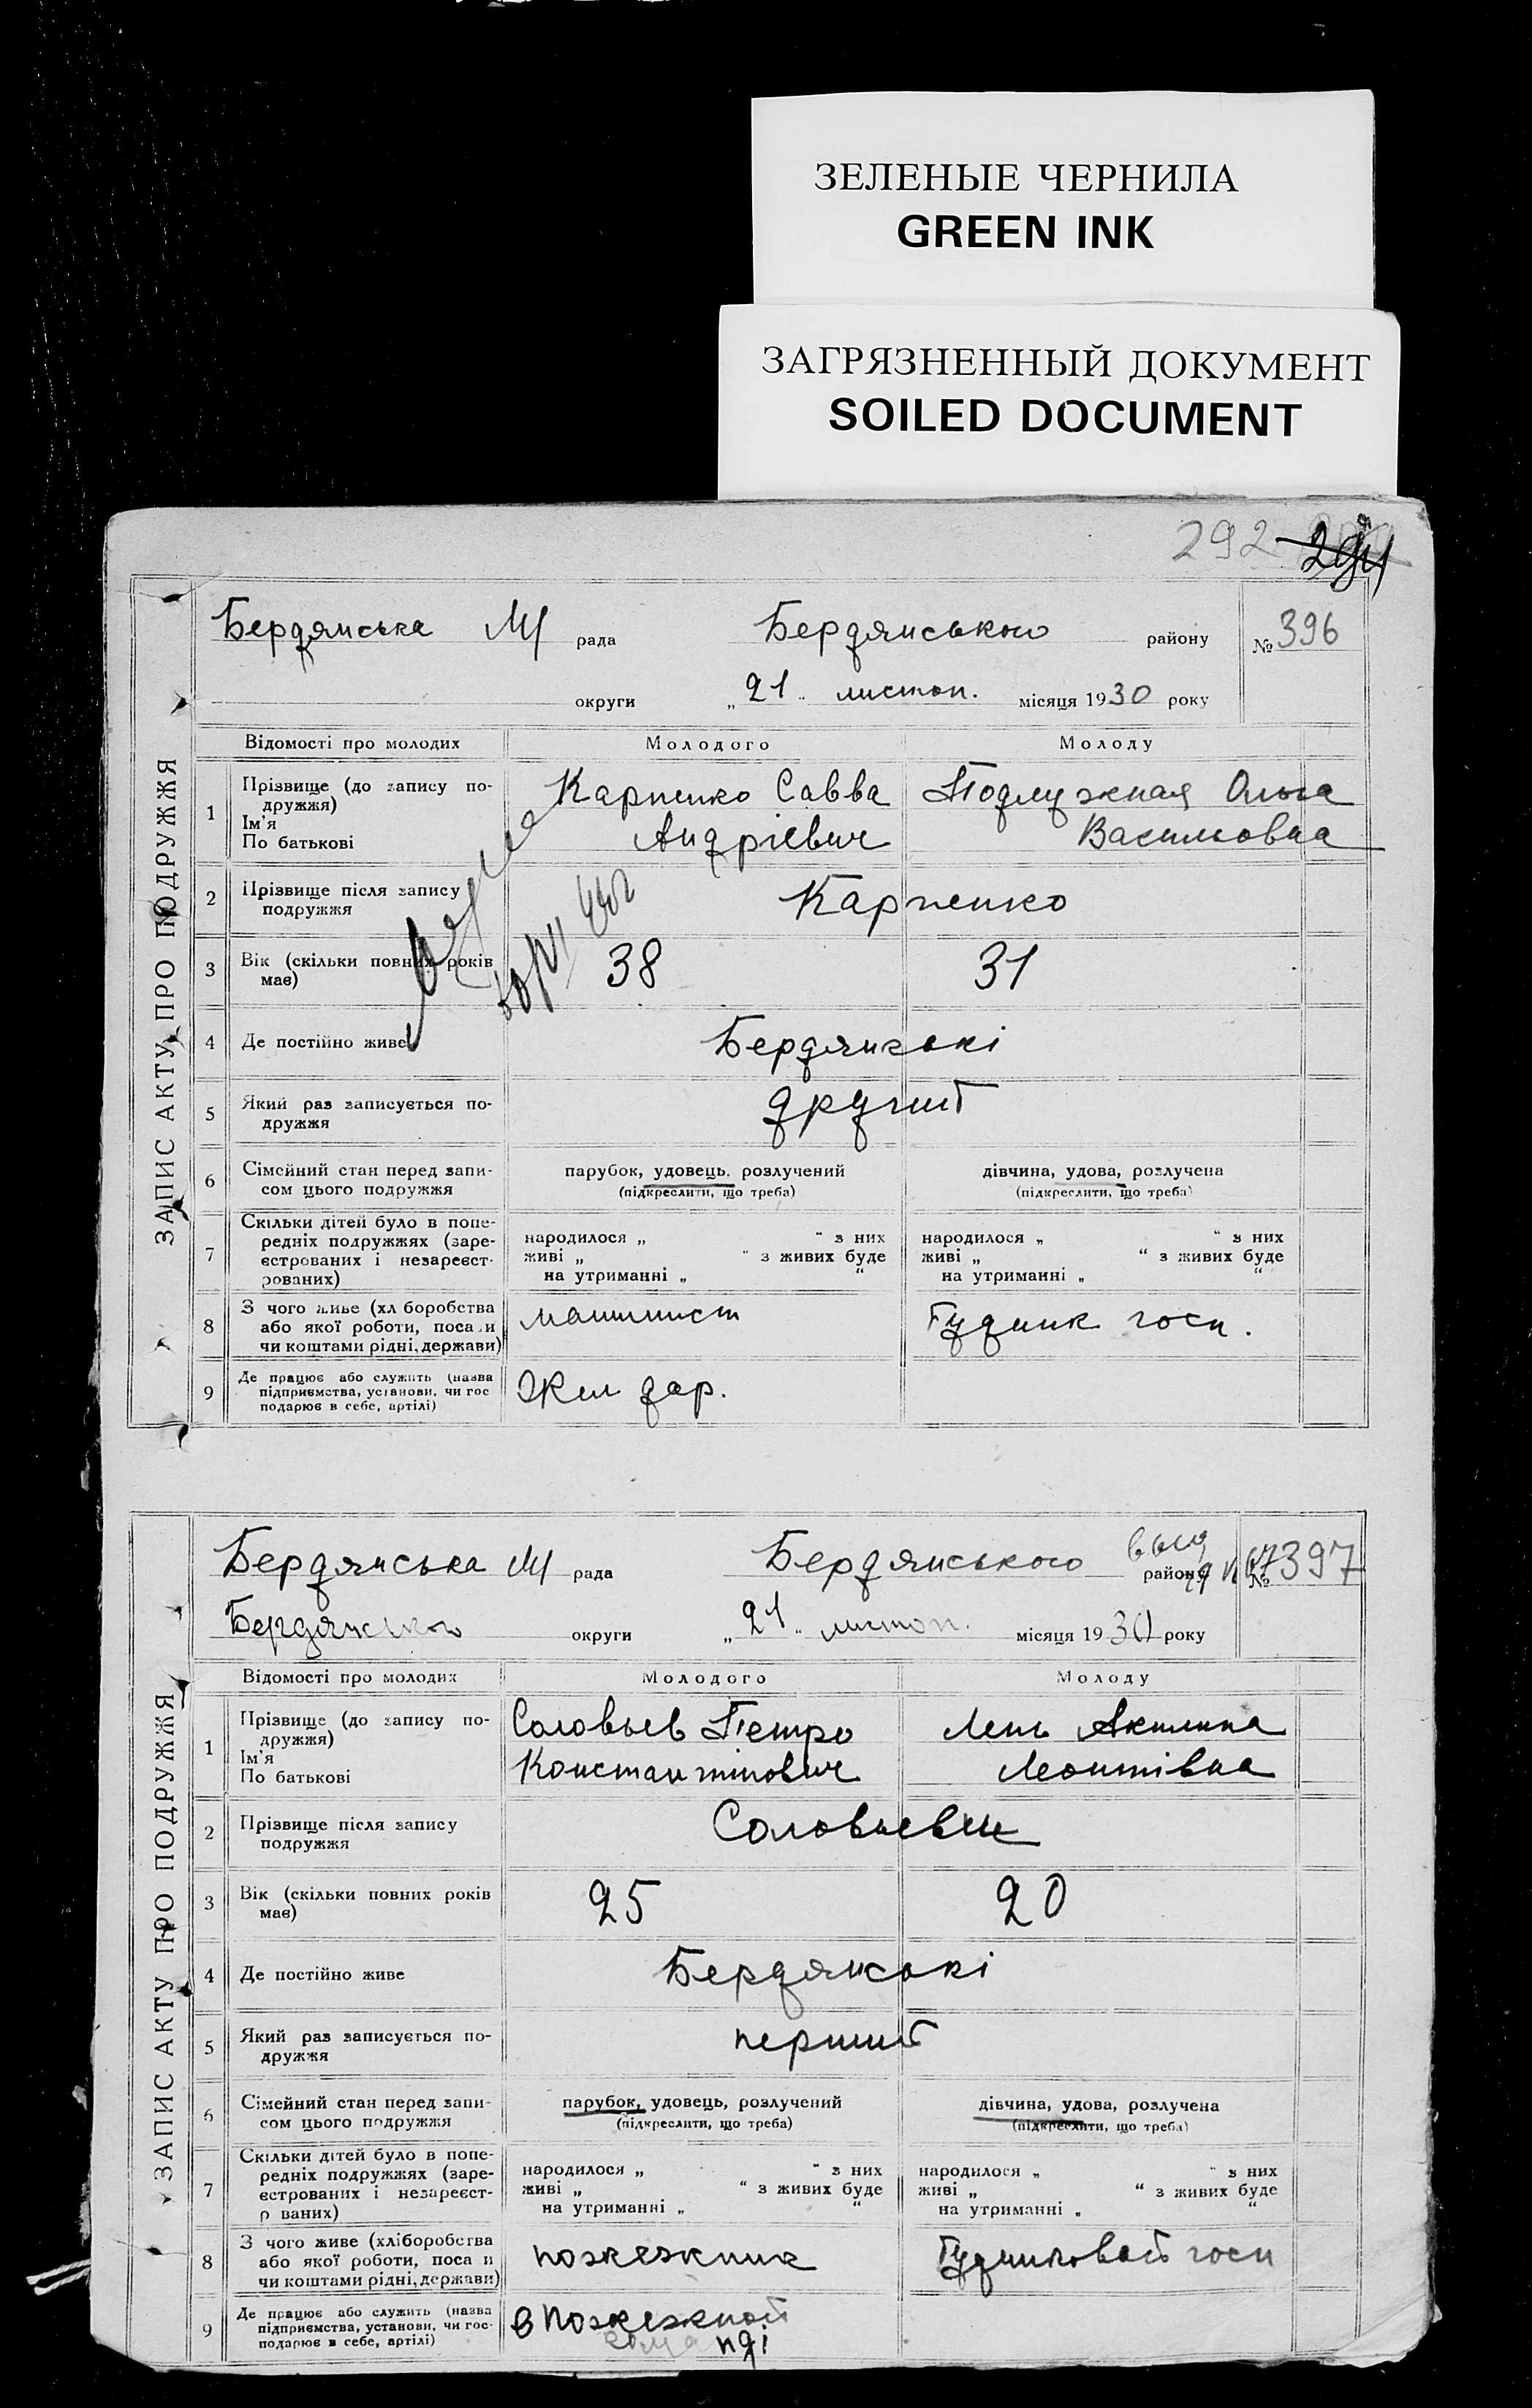 ЗЕЛЕНЫЕ ЧЕРНИЛА
GREEN INK
ЗАГРЯЗНЕННЫЙ ДОКУМЕНТ
SOILED DOCUMENT
292
ЗАПИС АКТУ ПРО ПОДРУЖЖЯ
Бердянська М рада Бердянського району № 396
округи „21„ листоп. місяця 1930 року
Відомості про молодих Молодого Молоду
1 Прізвище (до запису подружжя) Ім'я По батькові
Карпенко Савва Подлужная Ольга
Андрієвич Васильовна
2 Прізвище після запису подружжя Карпенко
3 Вік (скільки повних років має) 38 31
4 Де постійно живе Бердянські
5 Який раз записується подружжя другий
6 Сімейний стан перед записом цього подружжя парубок, удовець. розлучений дівчина, удова, розлучена
(підкреслити, що треба) (підкреслити, що треба)
7 Скільки дітей було в попередніх подружжях (зареєстрованих і незареєстрованих)
народилося „ “ з них народилося „ “ з них
живі „ “ з живих буде живі „ “ з живих буде
на утриманні „ “ на утриманні „ “
8 З чого живе (хліборобства або якої роботи, посади чи коштами рідні, держави) машинист Будинк госп.
9 Де працює або служить (назва підприємства, установи, чи господарює в себе, артілі)
ЗАПИС АКТУ ПРО ПОДРУЖЖЯ
Бердянська М рада Бердянського району № 397
Бердянського округи „21„ листоп. місяця 1930 року
Відомості про молодих Молодого Молоду
1 Прізвище (до запису подружжя) Ім'я По батькові
Соловьев Петро Лень Акилина
Константинович Леонтівна
2 Прізвище після запису подружжя Соловьеви
3 Вік (скільки повних років має) 25 20
4 Де постійно живе Бердянські
5 Який раз записується подружжя перший
6 Сімейний стан перед записом цього подружжя парубок, удовець, розлучений дівчина, удова, розлучена
(підкреслити, що треба) (підкреслити, що треба)
7 Скільки дітей було в попередніх подружжях (зареєстрованих і незареєстрованих)
народилося „ “ з них народилося „ “ з них
живі „ “ з живих буде живі „ “ з живих буде
на утриманні „ “ на утриманні „ “
8 З чого живе (хліборобства або якої роботи, посади чи коштами рідні, держави) пожежник Будинковой госп
9 Де працює або служить (назва підприємства, установи, чи господарює в себе, артілі) в пожежной
командi